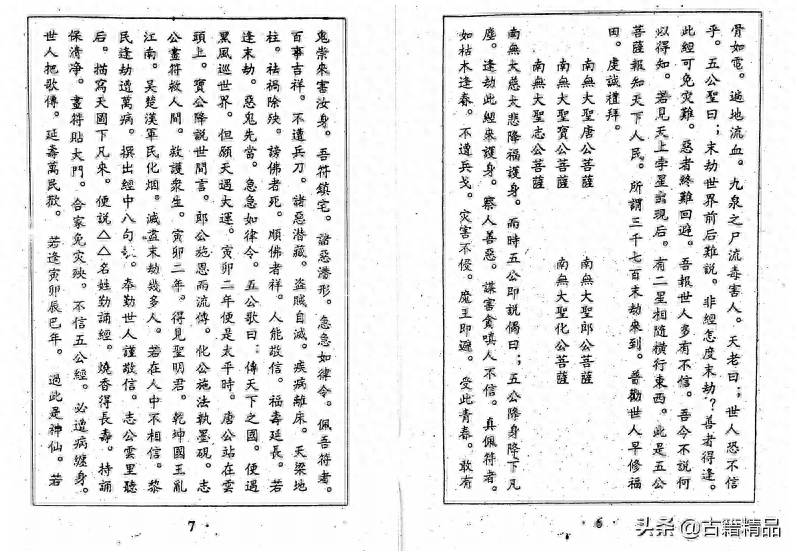 骨如雪。遍地流血。九泉之尸流毒害人。天老曰；世人恐不信
乎。五公聖曰；末劫世界前后難説。非經怎度末劫？善者得逢。
此經可免灾難。惡者終難回避。吾報世人多有不信。吾今不説何
以得知。若見天上孛星出現后。有二星相隨橫行東西。此是五公
菩薩報知天下人民。所謂三千七百末劫來到。普勸世人早修福
田。虔誠禮拜。
南無大聖唐公菩薩　南無大聖郎公菩薩
南無大聖寶公菩薩　南無大聖化公菩薩
南無大聖志公菩薩
南無大慈大悲降福護身。而時五公即説偈曰；五公降身降下凡
塵。逢劫此經來護身。察人善惡。謀害貪嗔人不信。真佩符者。
如枯木逢春。不遭兵戈。灾害不侵。魔王即避。受此青春。敢有
6
鬼祟來害汝身。吾符鎮宅。諸惡潛形。急急如律令。佩吾符者。
百事吉祥。不遭兵刀。諸惡潛藏。盗賊自滅。疾病離床。天梁地
柱。祛禍除殃。謗佛者死。順佛者祥。人能敬信。福壽延長。若
逢末劫。惡鬼先當。急急如律令。五公歌曰；傳天下之國。便遇
黑風巡世界。但願天遇大運。寅卯二年便是太平時。唐公站在雲
頭上。寶公降説世間言。郎公施恩而流傳。化公施法執墨硯。志
公畫符救人間。救護衆生。寅卯二年。得見聖明君。乾坤國王亂
江南。吴楚漢軍民化烟。滅盡末劫幾多人。若在人中不相信。黎
民逢劫遭萬病。撰出經中八句。奉勸世人謹敬信。志公雲里聽
后。描寫天國下凡來。便説△△名姓勤誦經。燒香得長壽。持誦
保清净。畫符貼大門。合家免灾殃。不信五公經。必遭病纏身。
世人把歌傳。延壽萬民歡。若逢寅卯辰巳年。過此是神仙。若
7
头条 @古籍精品